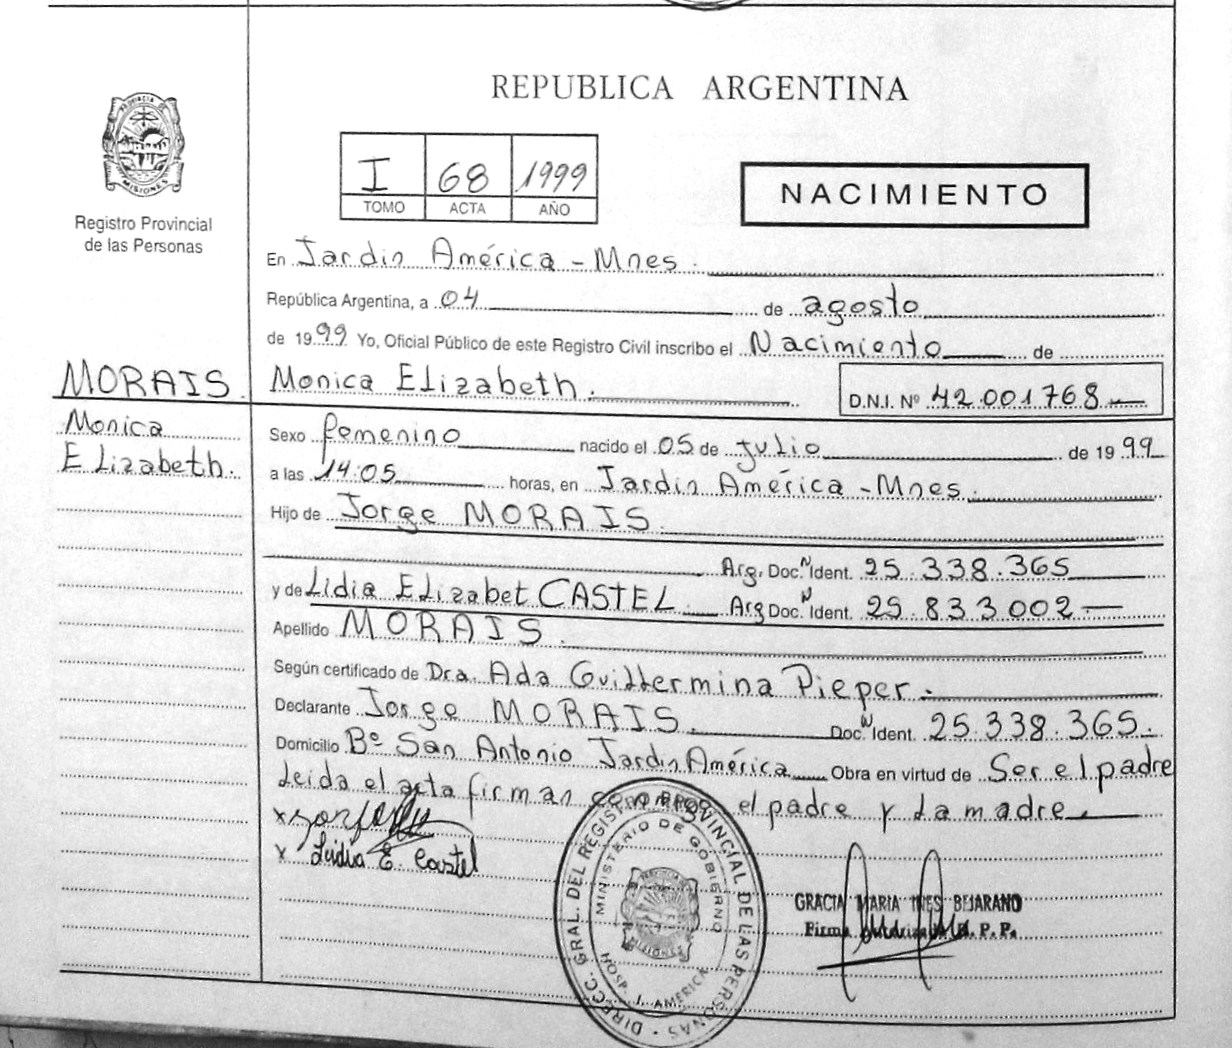 REPUBLICA ARGENTINA
PROVINCIA DE
MISIONES
Registro Provincial
de las Personas
I 68 1999
TOMO ACTA AÑO
NACIMIENTO
En Jardin América - Mnes.
República Argentina, a 04 de agosto
de 1999 Yo, Oficial Público de este Registro Civil inscribo el Nacimiento de
MORAIS Monica Elizabeth. D.N.I. Nº 42.001768
Monica
Elizabeth.
Sexo femenino nacido el 05 de julio de 1999
a las 14:05 horas, en Jardin América - Mnes.
Hijo de Jorge MORAIS.
Arg. Doc. N Ident. 25.338.365
y de Lidia Elizabet CASTEL. Arg Doc. N Ident. 25.833.002
Apellido MORAIS.
Según certificado de Dra. Ada Guillermina Pieper.
Declarante Jorge MORAIS. Doc. N Ident. 25.338.365.
Domicilio Bº San Antonio Jardin América Obra en virtud de Ser el padre
Leida el acta firman el padre y la madre
x
x Lidia E. Castel
DIRECC. GRAL. DEL REGISTRO PROVINCIAL DE LAS PERSONAS
MINISTERIO DE GOBIERNO
HOSP. J. AMERICA
GRACIA MARIA INES BEJARANO
Firma R. P. P.